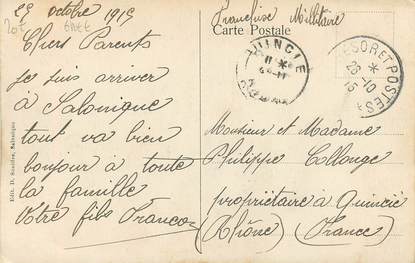 29 octobre 1915
20E
GREE
Chers Parents
Je suis arriver
à Salonique
tout va bien
bonjour à toute
la famille
Votre fils Franco
Edit. D. Saadias, Salonique
Franchise Militaire
Carte Postale
QUINCIÉ
TRESOR ET POSTES
28-10
15
Monsieur et Madame
Philippe Collonge
propriétaire à Quincié
(Rhône) (France)